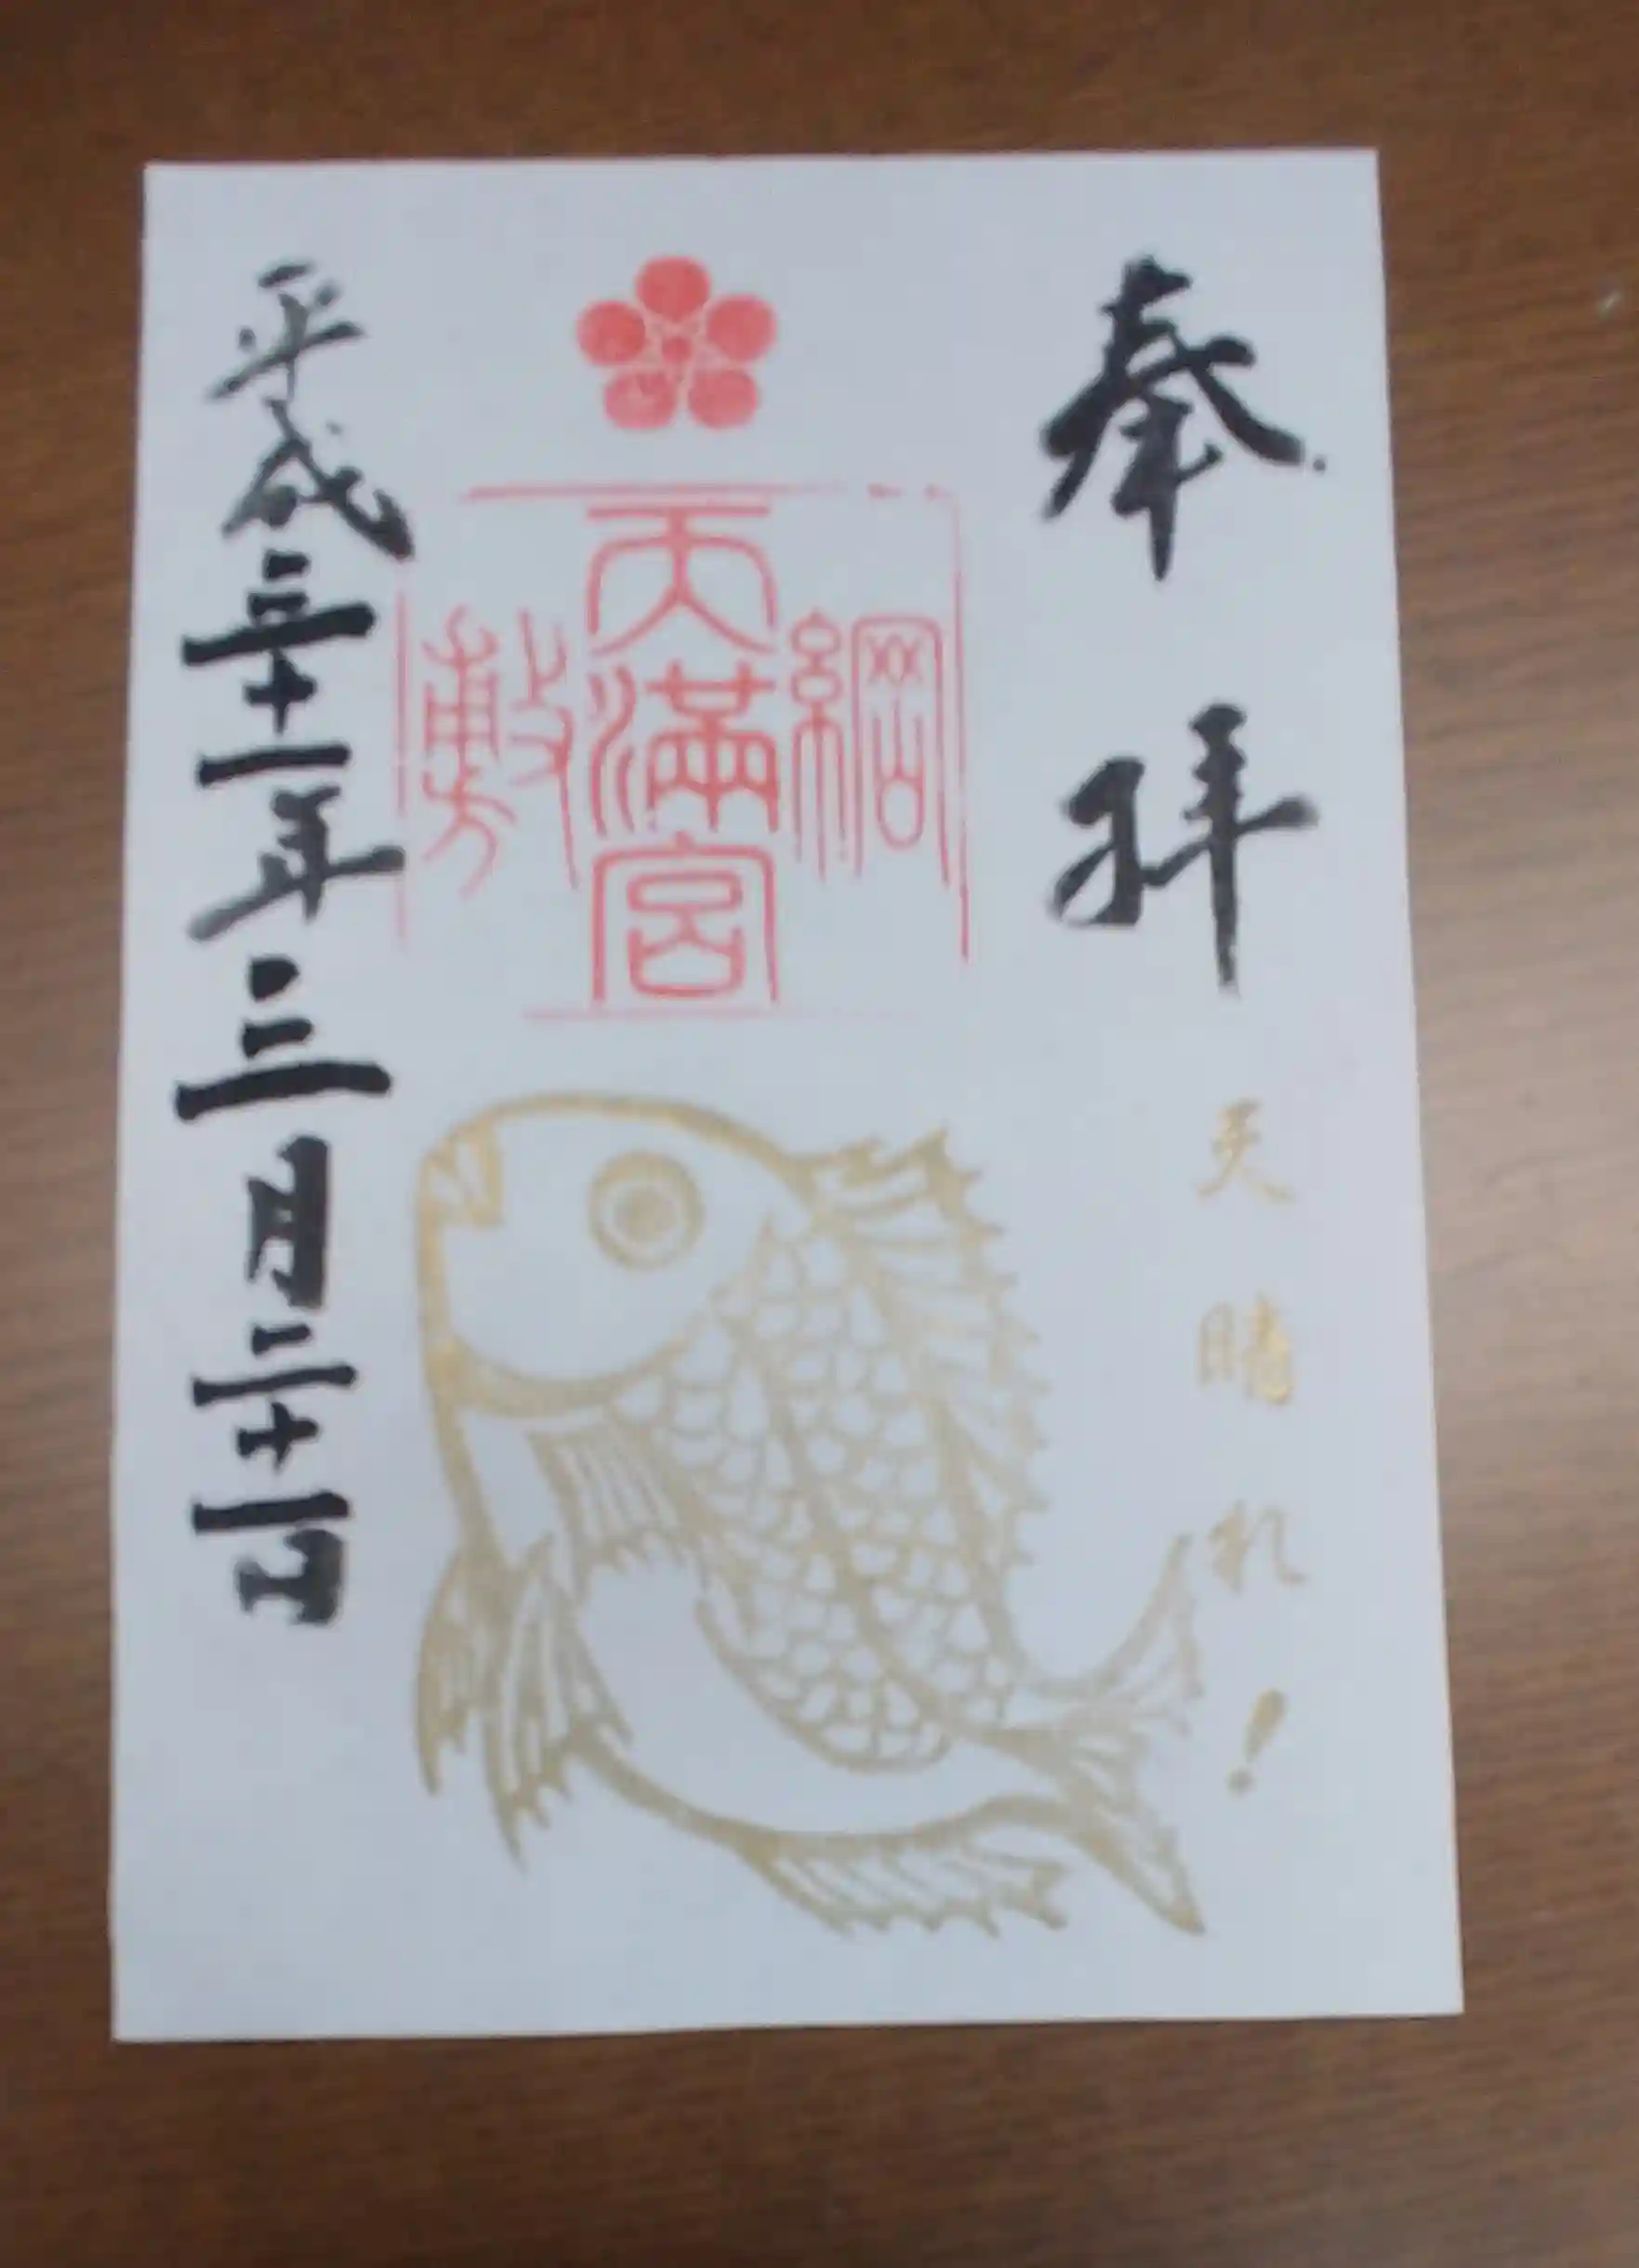 奉拝
天晴れ！
綱敷
天満宮
平成三十一年三月三十一日